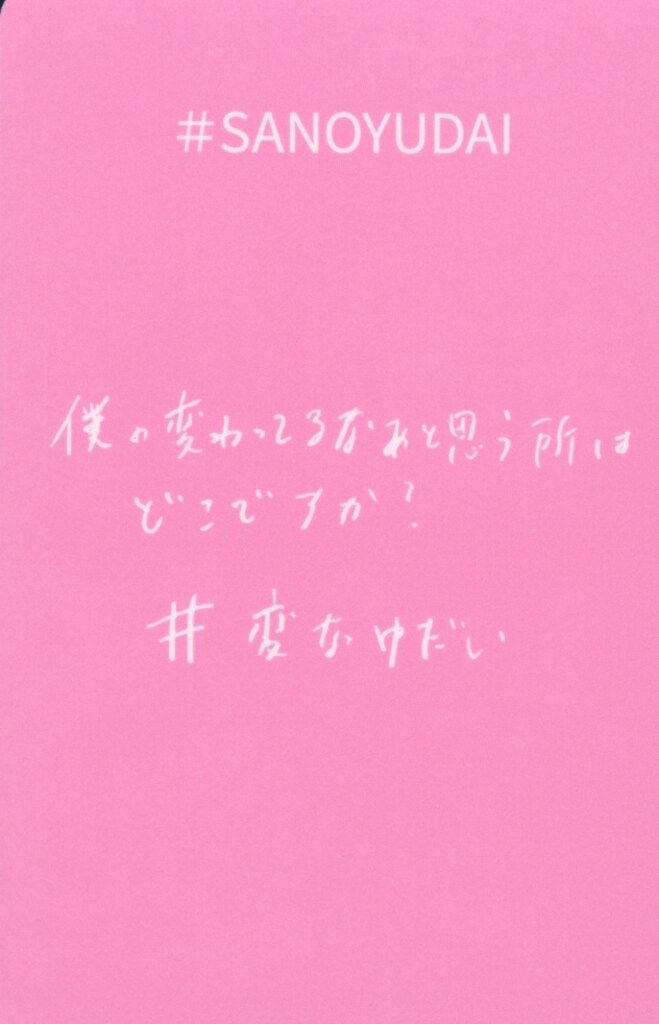 #SANOYUDAI
僕の変わってるなぁと思う所は
どこですか?
#変なゆだい